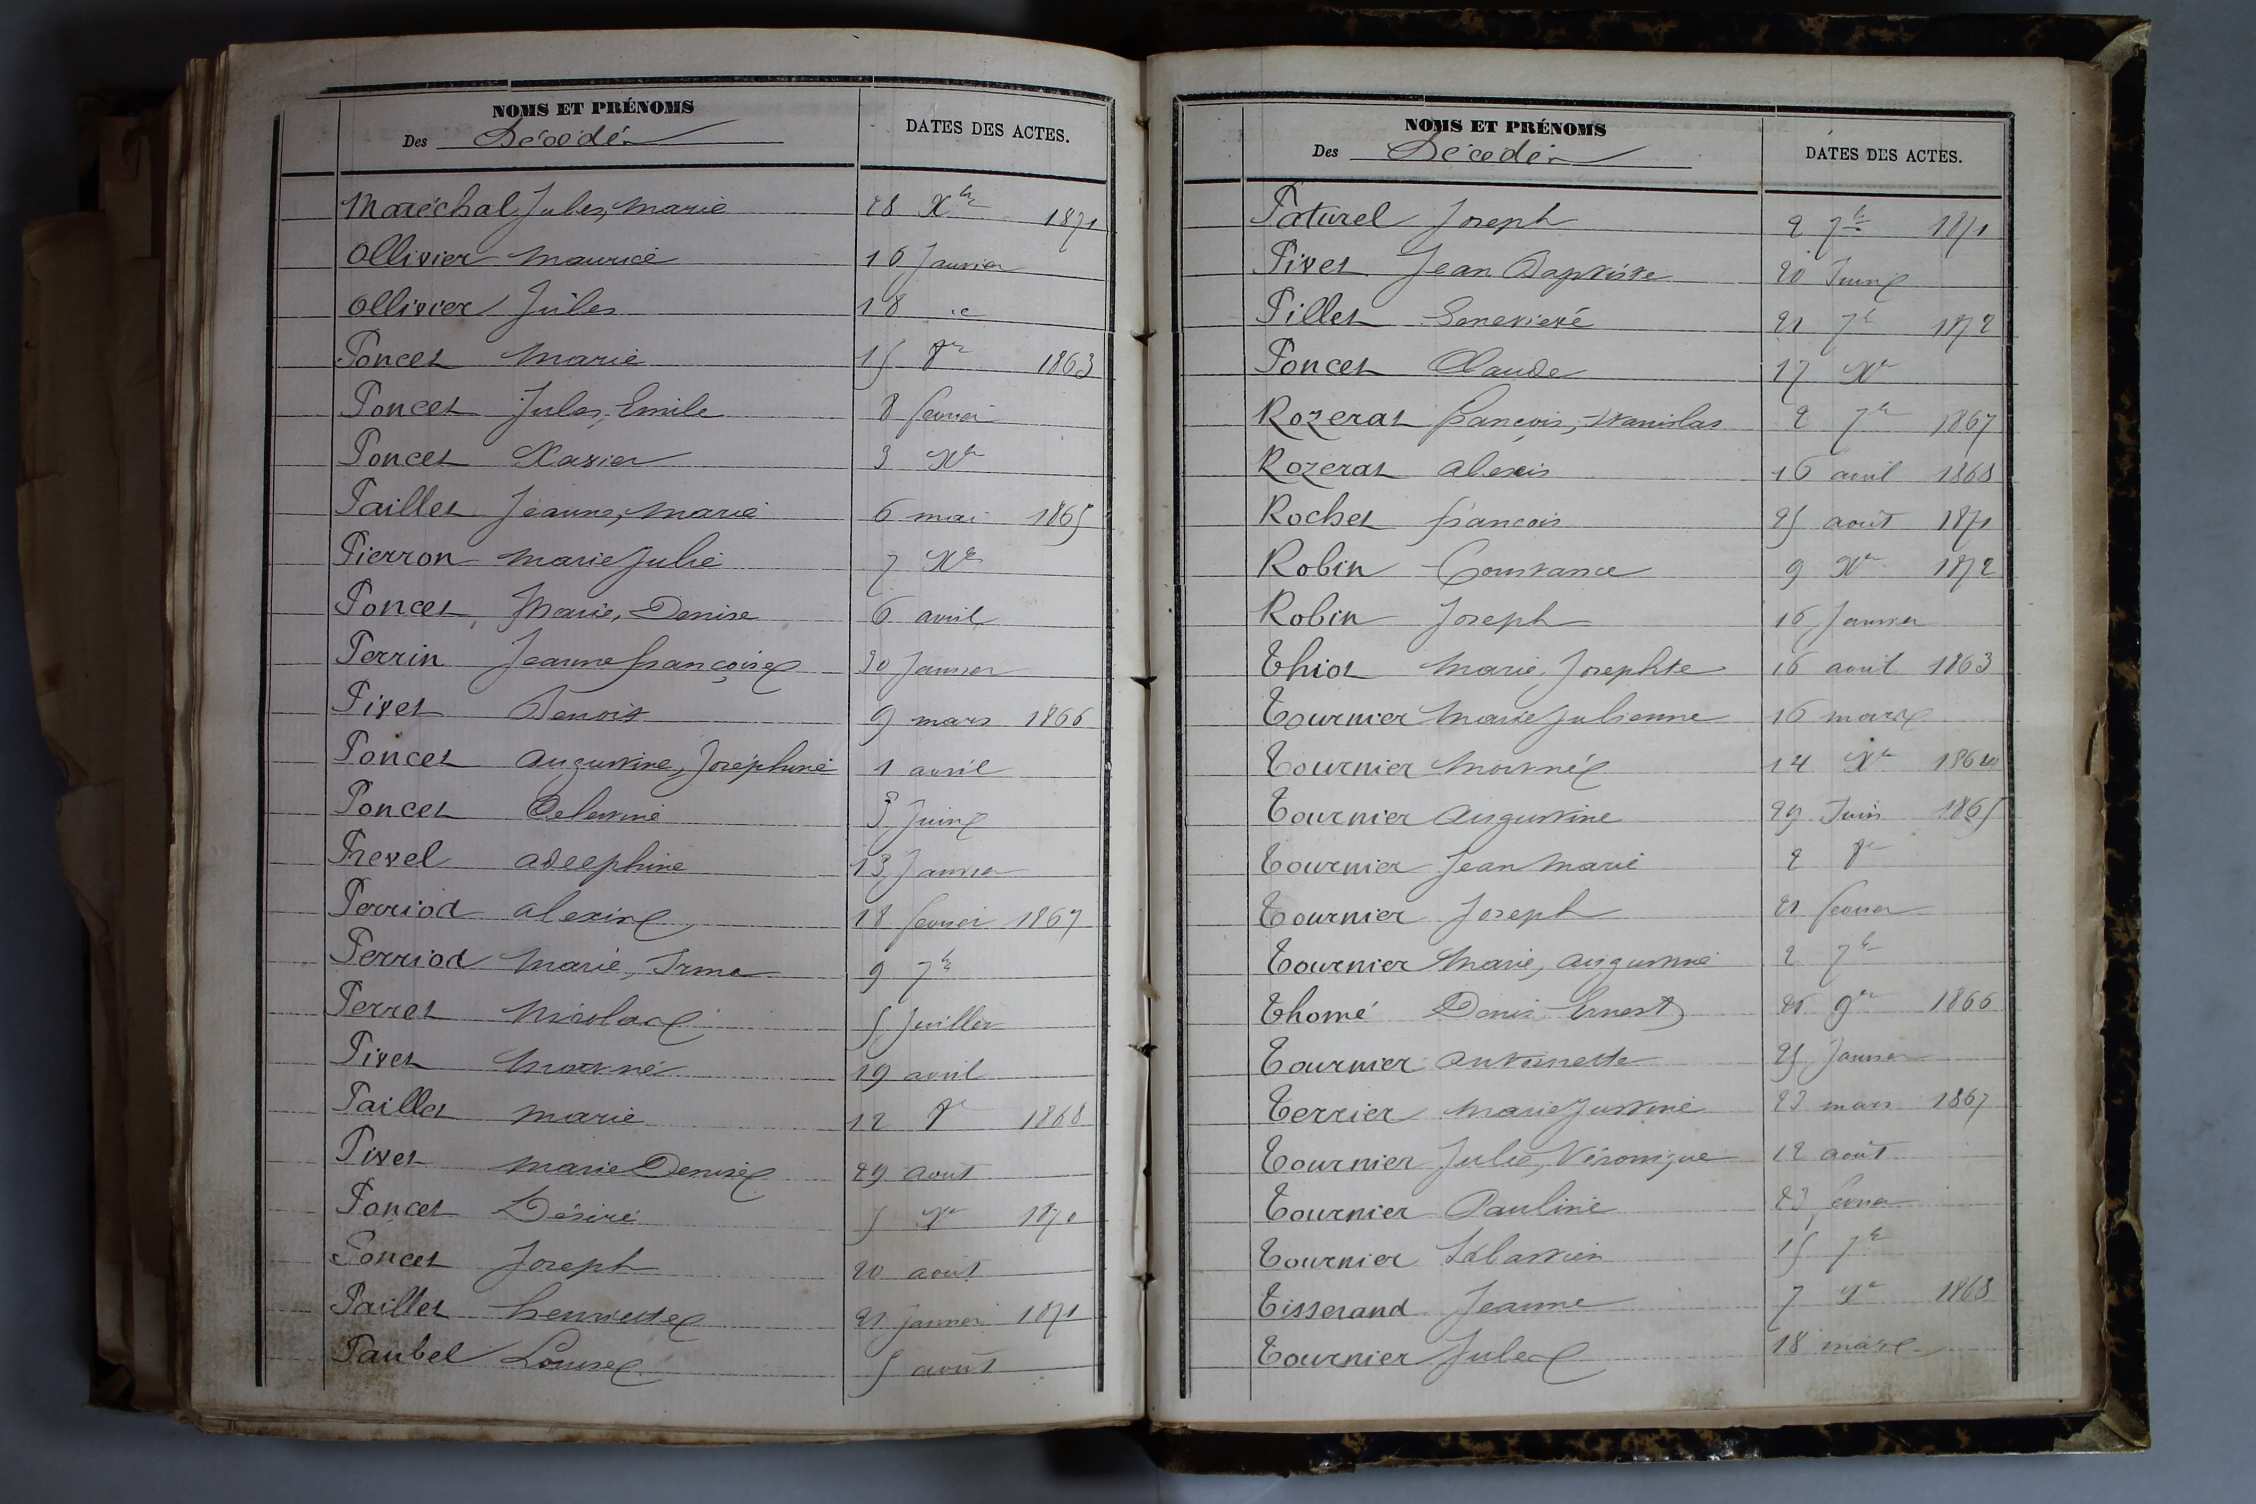 NOMS ET PRÉNOMS
Des Décédés
DATES DES ACTES.
Maréchal Jules, Marie 28 Xbre 1871
Ollivier Maurice 16 Janvier
Ollivier Jules 18
Poncet Marie 15 8re 1863
Poncet Jules, Emile 8 fevrier
Poncet Xavier 3 Xre
Paillet Jeanne, Marie 6 mai 1865
Pierron Marie Julie 7 Xre
Poncet Marie, Denise 6 avril
Perrin Jeanne françoise 30 Janvier
Pivet Benoit 9 mars 1866
Poncet Augustine, Joséphine 1 avril
Poncet Celestine 3 Juin
Prevel Adeephine 13 Janvier
Perriod Alexine 18 fevrier 1867
Perriod Marie, Irma 9 7bre
Perret Nicolas 5 Juillet
Pivet Mort né 19 avril
Paillet Marie 12 8re 1868
Pivet Marie Denise 29 août
Poncet Désiré 5 Xre 1870
Poncet Joseph 20 août
Paillet henriette 21 Janvier 1871
Paubel Louise 5 août
NOMS ET PRÉNOMS
Des Décédés
DATES DES ACTES.
Paturel Joseph 2 7bre 1871
Pivet Jean Baptiste 20 Juin
Pillet Genevieve 21 7bre 1872
Poncet Claude 17 Xre
Rozerat françois, Stanislas 2 7bre 1867
Rozerat Alexis 16 avril 1868
Rochet françois 25 août 1871
Robin Constance 9 Xre 1872
Robin Joseph 16 Janvier
Thiot Marie, Josephte 16 avril 1863
Tournier Marie Julienne 16 mars
Tournier Mort né 14 Xre 1864
Tournier Augustine 29 Juin 1865
Tournier Jean Marie 2 8re
Tournier Joseph 21 fevrier
Tournier Marie, Augustine 2 7bre
Thomé Denis Ernest 26 9re 1866
Tournier Antoinette 25 Janvier
Terrier Marie Justine 23 mars 1867
Tournier Julie, Véronique 12 août
Tournier Pauline 23 fevrier
Tournier Sébastien 15 7bre
Tisserand Jeanne 7 Xre 1868
Tournier Jules 18 mars